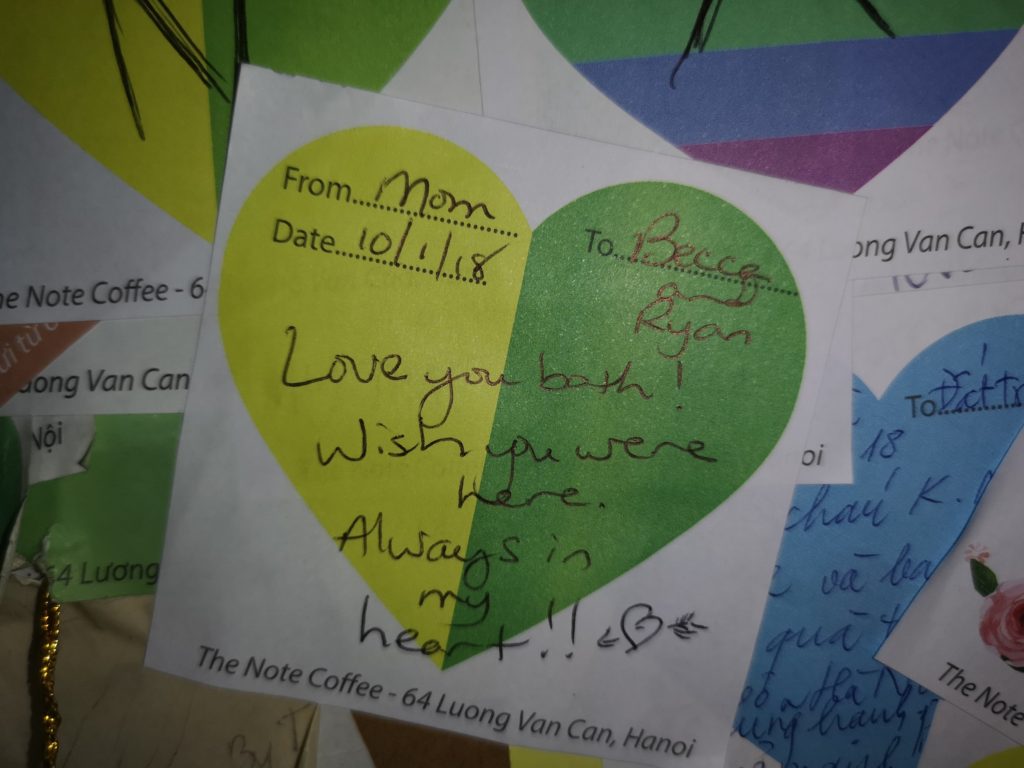 From...Mom
Date...10/1/18
To...Becca
Ryan
Love you both!
Wish you were
here.
Always in
my
heart!!
The Note Coffee - 64 Luong Van Can, Hanoi
he Note Coffee - 6
uong Van Can
Nội
64 Lương
ong Van Can, H
oi
To
18
cháu K.
và ba
quá
The Note